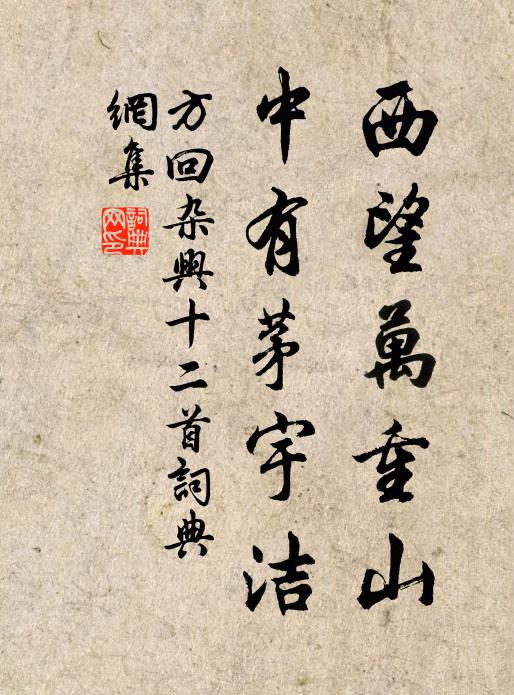 西望萬重山
中有茅宇洁
方回杂興十二首詞典
網集
詞典網印